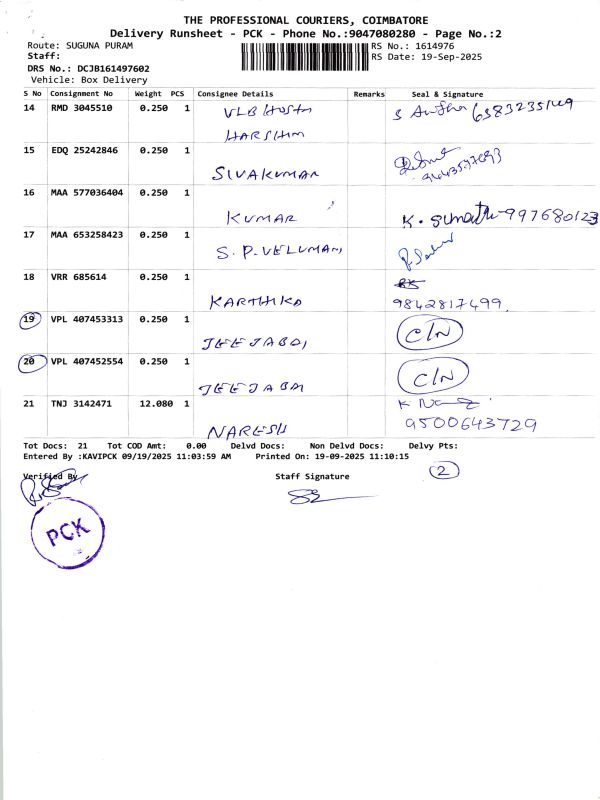 THE PROFESSIONAL COURIERS, COIMBATORE
Delivery Runsheet - PCK - Phone No.:9047080280 - Page No.:2
Route: SUGUNA PURAM RS No.: 1614976
Staff: RS Date: 19-Sep-2025
DRS No.: DCJB161497602
Vehicle: Box Delivery
S No Consignment No Weight PCS Consignee Details Remarks Seal & Signature
14 RMD 3045510 0.250 1 VLB
HARSHM
15 EDQ 25242846 0.250 1 SIVAKUMAR
16 MAA 577036404 0.250 1 KUMAR K. Sumathi-997680123
17 MAA 653258423 0.250 1 S.P.VELUMANI
18 VRR 685614 0.250 1 KARTHIKA 9842817499
19 VPL 407453313 0.250 1 JEEJABAI C/N
20 VPL 407452554 0.250 1 JEEJABAI C/N
21 TNJ 3142471 12.080 1 NARESH K
9500643729
Tot Docs: 21 Tot COD Amt: 0.00 Delvd Docs: Non Delvd Docs: Delvy Pts:
Entered By :KAVIPCK 09/19/2025 11:03:59 AM Printed On: 19-09-2025 11:10:15
2
Verified By Staff Signature
PCK